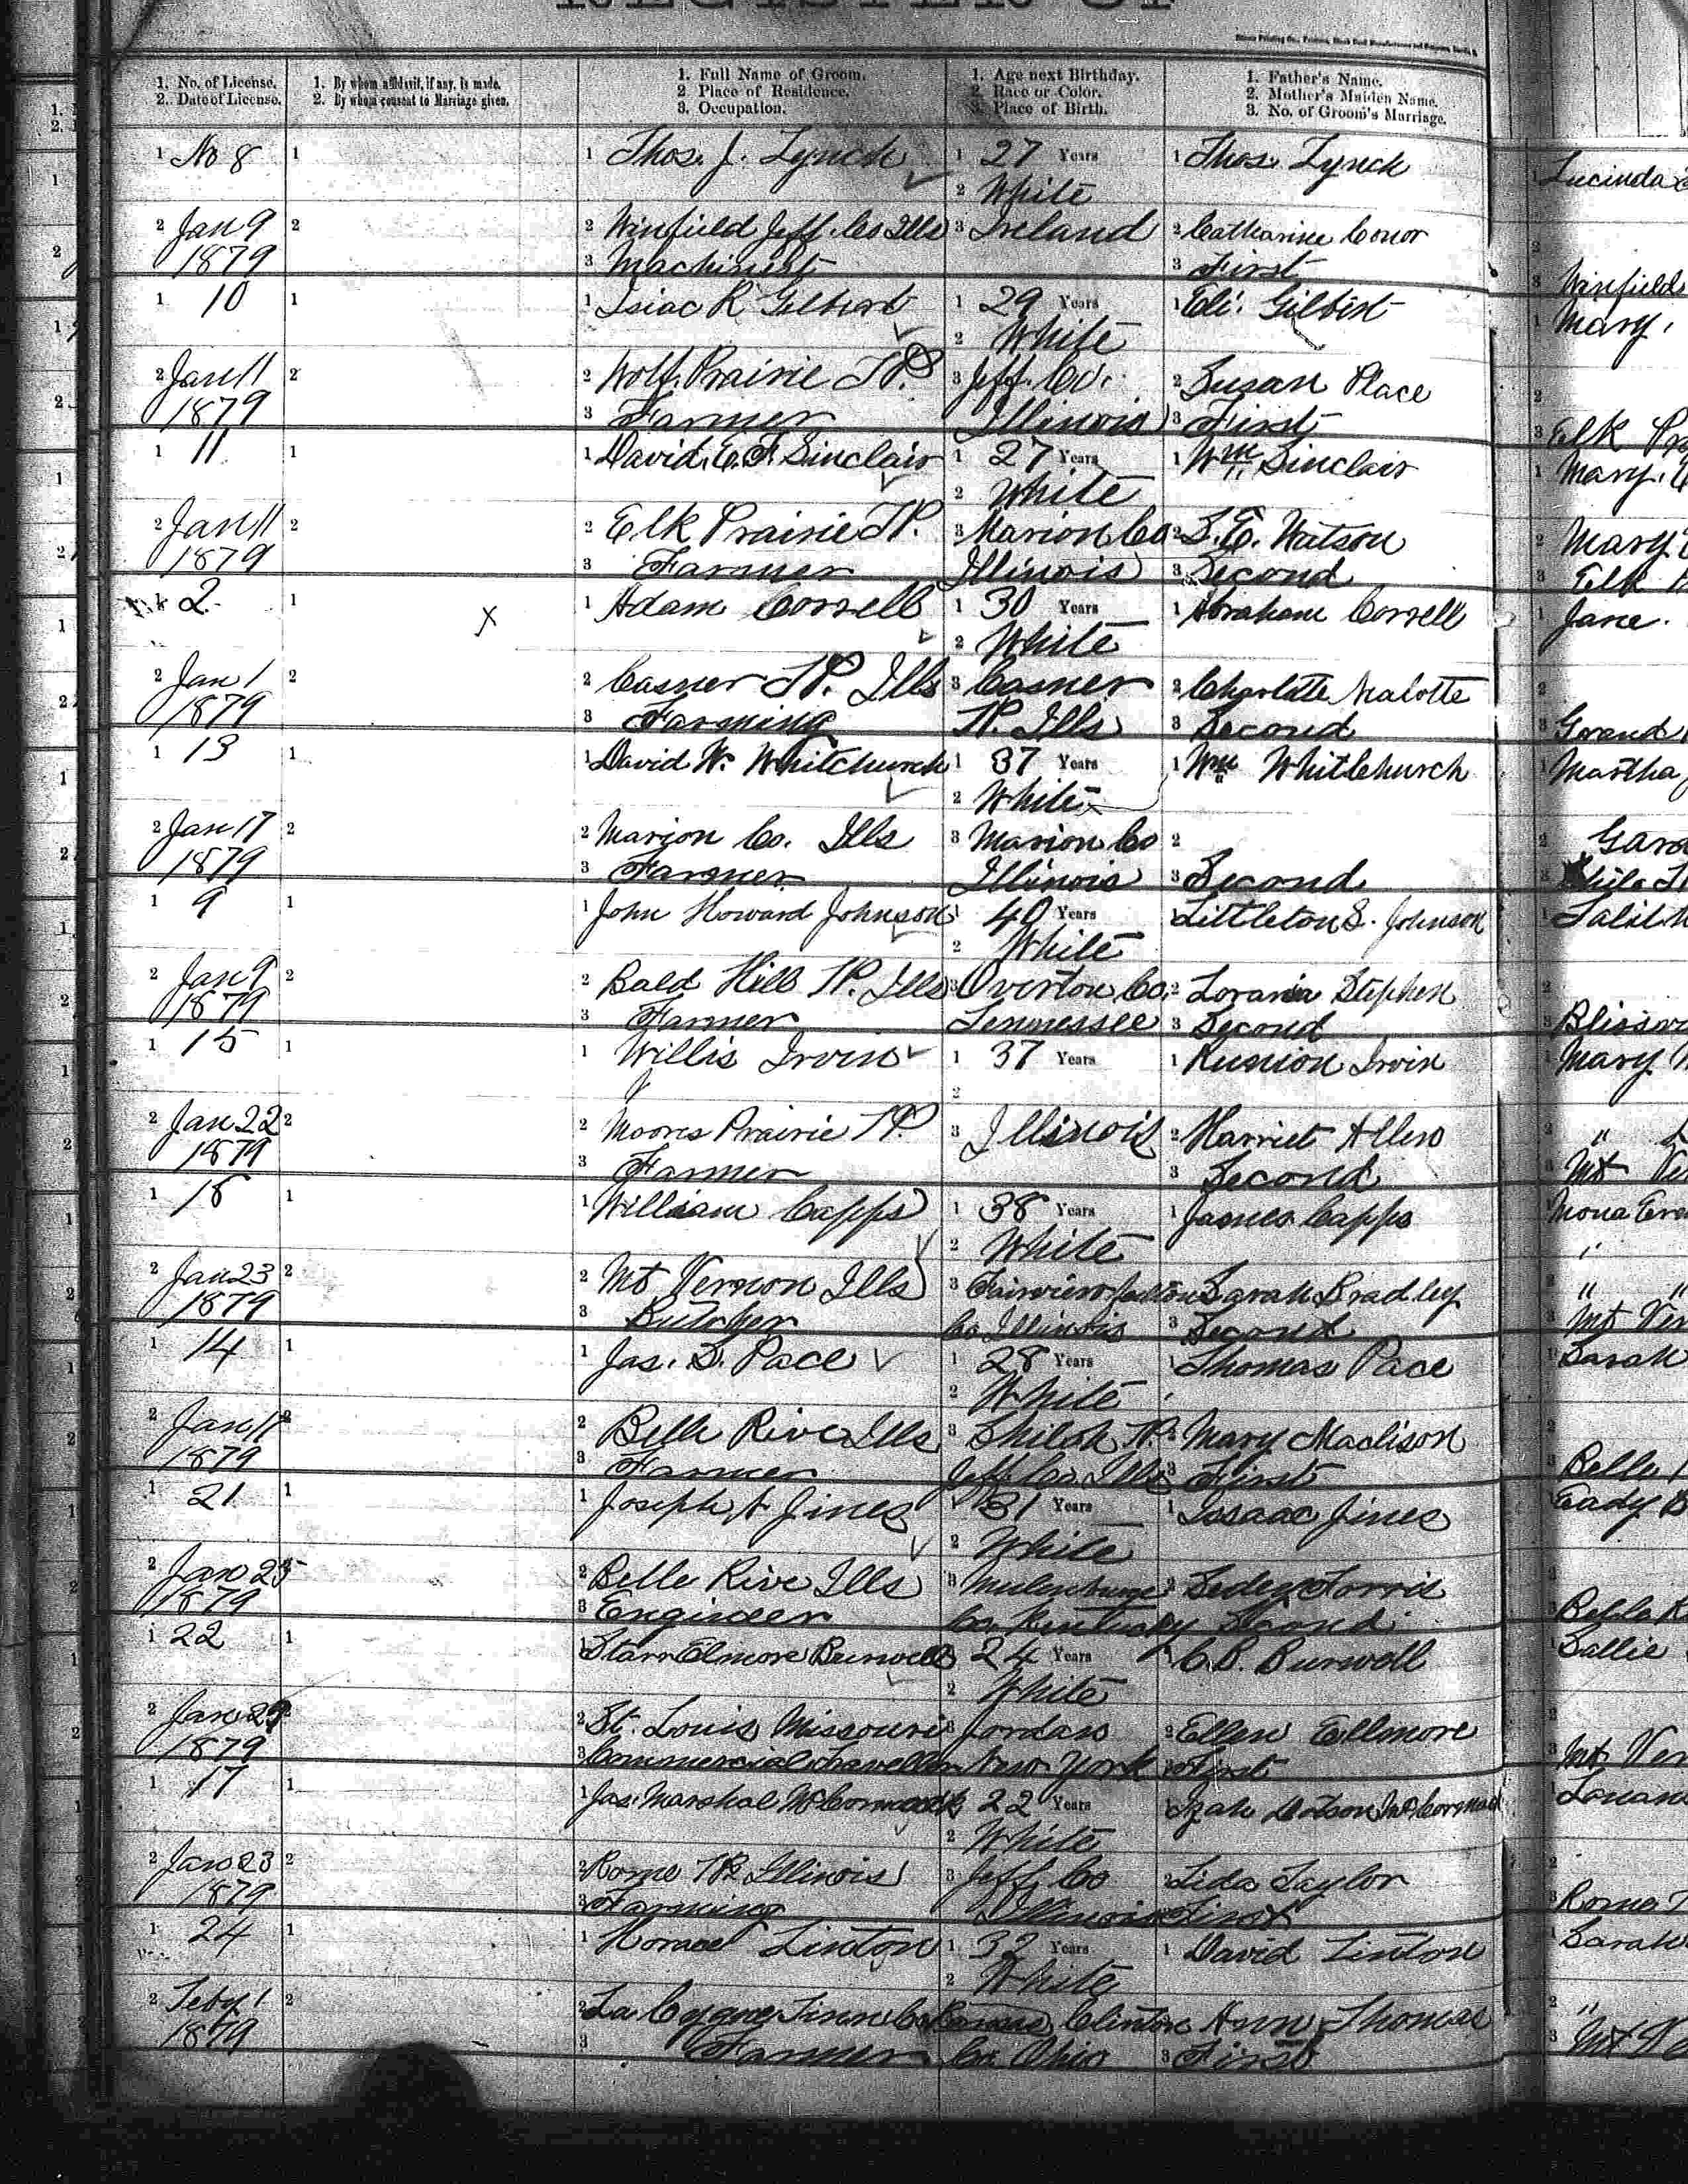 REGISTER OF
1. No. of License.
2. Date of License.
1. By whom affidavit, if any, is made.
2. By whom consent to Marriage given.
1. Full Name of Groom.
2. Place of Residence.
3. Occupation.
1. Age next Birthday.
2. Race or Color.
3. Place of Birth.
1. Father's Name.
2. Mother's Maiden Name.
3. No. of Groom's Marriage.
1 No 8 1 1 Thos. J. Lynch 1 27 Years 1 Thos. Lynch Lucinda
2 White
2 Jan 9 2 2 Winfield Jeff. Co Ills 3 Ireland 2 Catharine Conor
1879 3 Machinist 3 First 3 Winfield
1 10 1 1 Isiac R Gilbert 1 29 Years 1 Eli. Gilbert 1 Mary.
2 White
2 Jan 11 2 2 Wolf. Prairie TP. 3 Jeff. Co. 2 Susan Place
1879 3 Farmer Illinois 3 First 3 Elk
1 11 1 1 David. E. F. Sinclair 1 27 Years 1 Wm. Sinclair 1 Mary.
2 White
2 Jan 11 2 2 Elk Prairie TP. 3 Marion Co 2 S. E. Watson 2 Mary
1879 3 Farmer Illinois 3 Second 3 Elk
2 1 x 1 Adam Correll 1 30 Years 1 Abraham Correll 1 Jane.
2 White
2 Jan 1 2 2 Casner TP. Ills 3 Casner 2 Charlotte Malotte
1879 3 Farming TP. Ills 3 Second 3 Grand
1 13 1 1 David W. Whitchurch 1 37 Years 1 Wm Whittchurch 1 Martha
2 White
2 Jan 17 2 2 Marion Co. Ills 3 Marion Co 2
1879 3 Farmer Illinois 3 Second
1 9 1 1 John Howard Johnson 1 40 Years 1 Littleton S. Johnson
2 White
2 Jan 9 2 2 Bald Hill TP. Ills 3 Overton Co. 2 Lorania Stephen
1879 3 Farmer Tennessee 3 Second
1 15 1 1 Willis Irvin 1 37 Years 1 Runion Irvin 1 Mary
2
2 Jan 22 2 2 Moores Prairie TP. 3 Illinois 2 Harriet Allen 2 "
1879 3 Farmer 3 Second 3 Mt
1 18 1 1 William Capps 1 38 Years 1 James Capps 1 Mona
2 White
2 Jan 23 2 2 Mt Vernon Ills 3 Fairview Fulton 2 Sarah Bradley 2 " "
1879 3 Butcher Co Illinois 3 Second 3 Mt
1 14 1 1 Jas. D. Pace 1 28 Years 1 Thomas Pace 1 Sarah
2 White
2 Jan 11 2 2 Belle Rive Ills 3 Shiloh TP. 2 Mary Madison
1879 3 Farmer Jeff. Co. Ills 3 First 3 Belle
1 21 1 1 Joseph A Jines 1 31 Years 1 Issaac Jines
2 White
2 Jan 25 2 Belle Rive Ills 3
1879 3 Engineer Co. Kentucky Second Belle
1 22 1 1 Starr Elmore Burwell 24 Years 1 C. B. Burwell 1 Sallie
2 White
2 Jan 29 2 St. Louis Missouri 3 Jordan 2 Ellen Ellmore
1879 3 Commercial traveller New York 3 First 3 Mt
1 17 1 1 Jas. Marshal McCormack 22 Years
2 White
2 Jan 23 2 2 Rome TP. Illinois 3 Jeff. Co 2 Lida Taylor
1879 3 Farming Illinois First 3 Rome
1 24 1 1 Linton 1 32 Years 1 David Linton 1 Sarah
2 White
2 Feby 1 2 2 La Cygne Linn Co Kansas Clinton Ann Thomas 2 "
1879 3 Farmer Co. Ohio 3 First 3 Mt